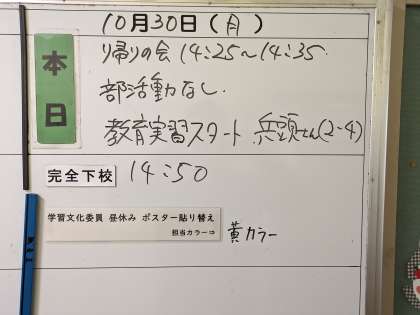 10月30日(月)
本日
帰りの会 14:25〜14:35
部活動なし
教育実習スタート 兵頭さん(2-4)
完全下校 14:50
学習文化委員 昼休み ポスター貼り替え
担当カラー⇒ 黄カラー